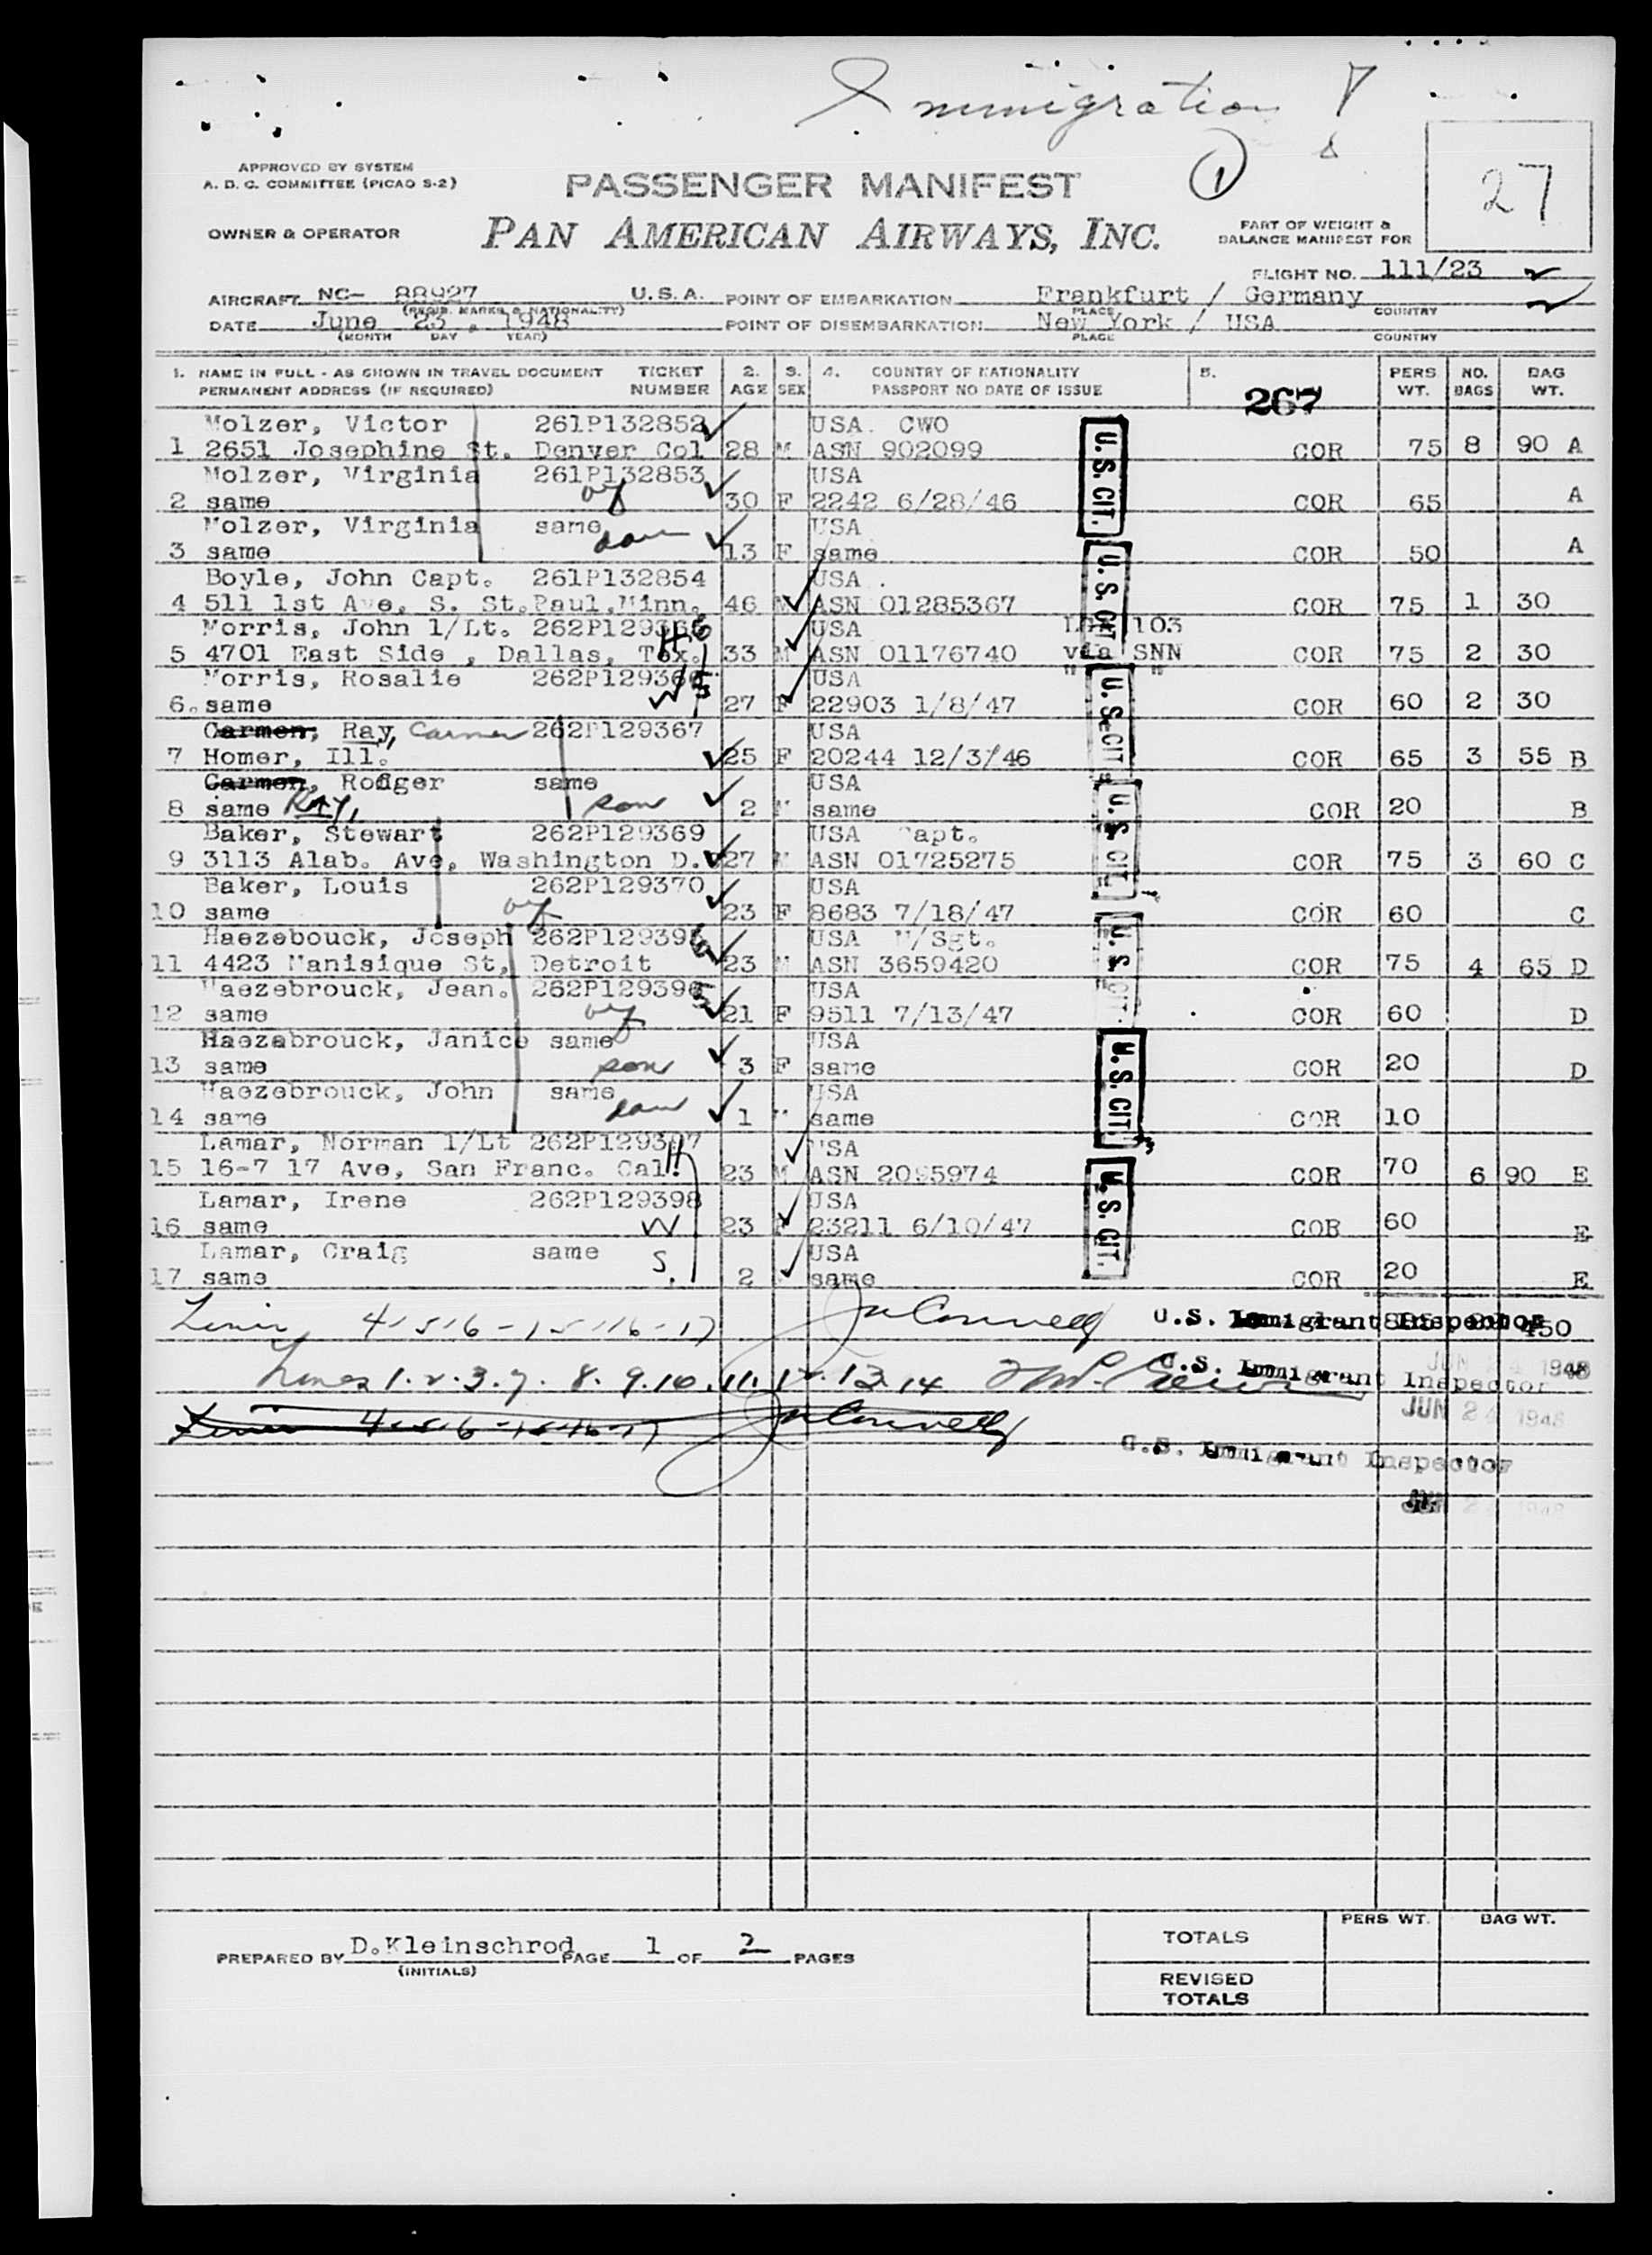 Immigration
1
APPROVED BY SYSTEM
A. D. C. COMMITTEE (PICAO S-2)
PASSENGER MANIFEST
27
OWNER & OPERATOR
PAN AMERICAN AIRWAYS, INC.
PART OF WEIGHT &
BALANCE MANIFEST FOR
FLIGHT NO. 111/23
AIRCRAFT NC- 88927 U.S.A. POINT OF EMBARKATION Frankfurt / Germany
(REGIS. MARKS & NATIONALITY) PLACE COUNTRY
DATE June 23, 1948 POINT OF DISEMBARKATION New York / USA
(MONTH DAY YEAR) PLACE COUNTRY
1. NAME IN FULL - AS SHOWN IN TRAVEL DOCUMENT TICKET 2. 3. 4. COUNTRY OF NATIONALITY 5. PERS NO. BAG
PERMANENT ADDRESS (IF REQUIRED) NUMBER AGE SEX PASSPORT NO DATE OF ISSUE 267 WT. BAGS WT.
Molzer, Victor 261P132852 USA. CWO
1 2651 Josephine St. Denver Col 28 M ASN 902099 COR 75 8 90 A
Molzer, Virginia 261P132853 USA
2 same 30 F 2242 6/28/46 COR 65 A
Molzer, Virginia same USA
3 same 13 F same COR 50 A
Boyle, John Capt. 261P132854 USA .
4 511 1st Ave, S. St.Paul,Minn. 46 M ASN 01285367 COR 75 1 30
Morris, John 1/Lt. 262P129366 USA 103
5 4701 East Side , Dallas, Tex. H 33 M ASN 01176740 via SNN COR 75 2 30
Morris, Rosalie 262P129365 USA " "
6. same W 27 F 22903 1/8/47 COR 60 2 30
Carmen, Ray, Carmen 262P129367 USA
7 Homer, Ill. 25 F 20244 12/3/46 COR 65 3 55 B
Carmen, Rodger same USA
8 same Ray, son 2 M same COR 20 B
Baker, Stewart 262P129369 USA Capt.
9 3113 Alab. Ave, Washington D. 27 M ASN 01725275 COR 75 3 60 C
Baker, Louis 262P129370 USA
10 same 23 F 8683 7/18/47 COR 60 C
Haezebouck, Joseph 262P129396 USA M/Sgt.
11 4423 Manisique St, Detroit 23 M ASN 3659420 COR 75 4 65 D
Haezebrouck, Jean. 262P129395 USA
12 same 21 F 9511 7/13/47 COR 60 D
Haezebrouck, Janice same USA
13 same son 3 F same COR 20 D
Haezebrouck, John same USA
14 same 1 M same COR 10
Lamar, Norman 1/Lt 262P129397 USA
15 16-7 17 Ave, San Franc. Cal. H 23 M ASN 2095974 COR 70 6 90 E
Lamar, Irene 262P129398 USA
16 same W 23 F 23211 6/10/47 COR 60 E
Lamar, Craig same USA
17 same S. 2 same COR 20 E
U.S. CIT.
U.S. CIT.
U.S. CIT.
U.S. CIT.
U.S. CIT.
U.S. CIT.
U.S. CIT.
4-5-6-15-16-17 U.S. Immigrant Inspector 450
Lines 1. 2. 3. 7. 8. 9. 10. 11. 12. 13. 14 U.S. Immigrant Inspector JUN 24 1948
JUN 24 1948
4-5-6-15-16-17
U.S. Immigrant Inspector
JUN 24 1948
PERS WT. BAG WT.
TOTALS
PREPARED BY D.Kleinschrod PAGE 1 OF 2 PAGES
(INITIALS)
REVISED
TOTALS